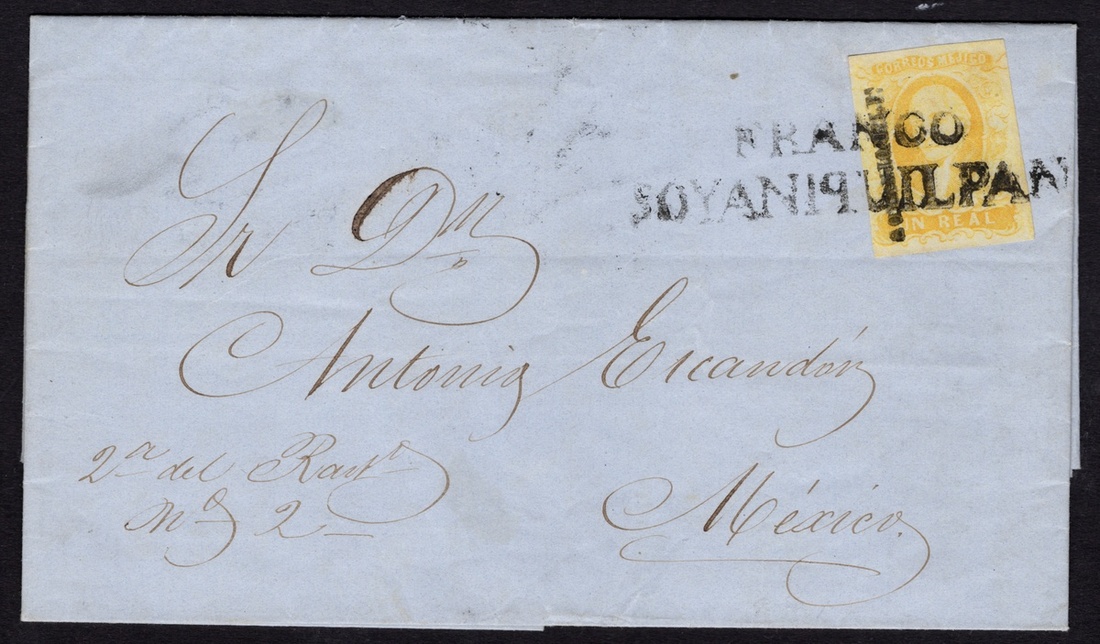 CORREOS MEJICO
UN REAL
FRANCO
SOYANIPUILPAN
Sr Dn
Antonio Escandón
2a del Rastro
No 2
México.